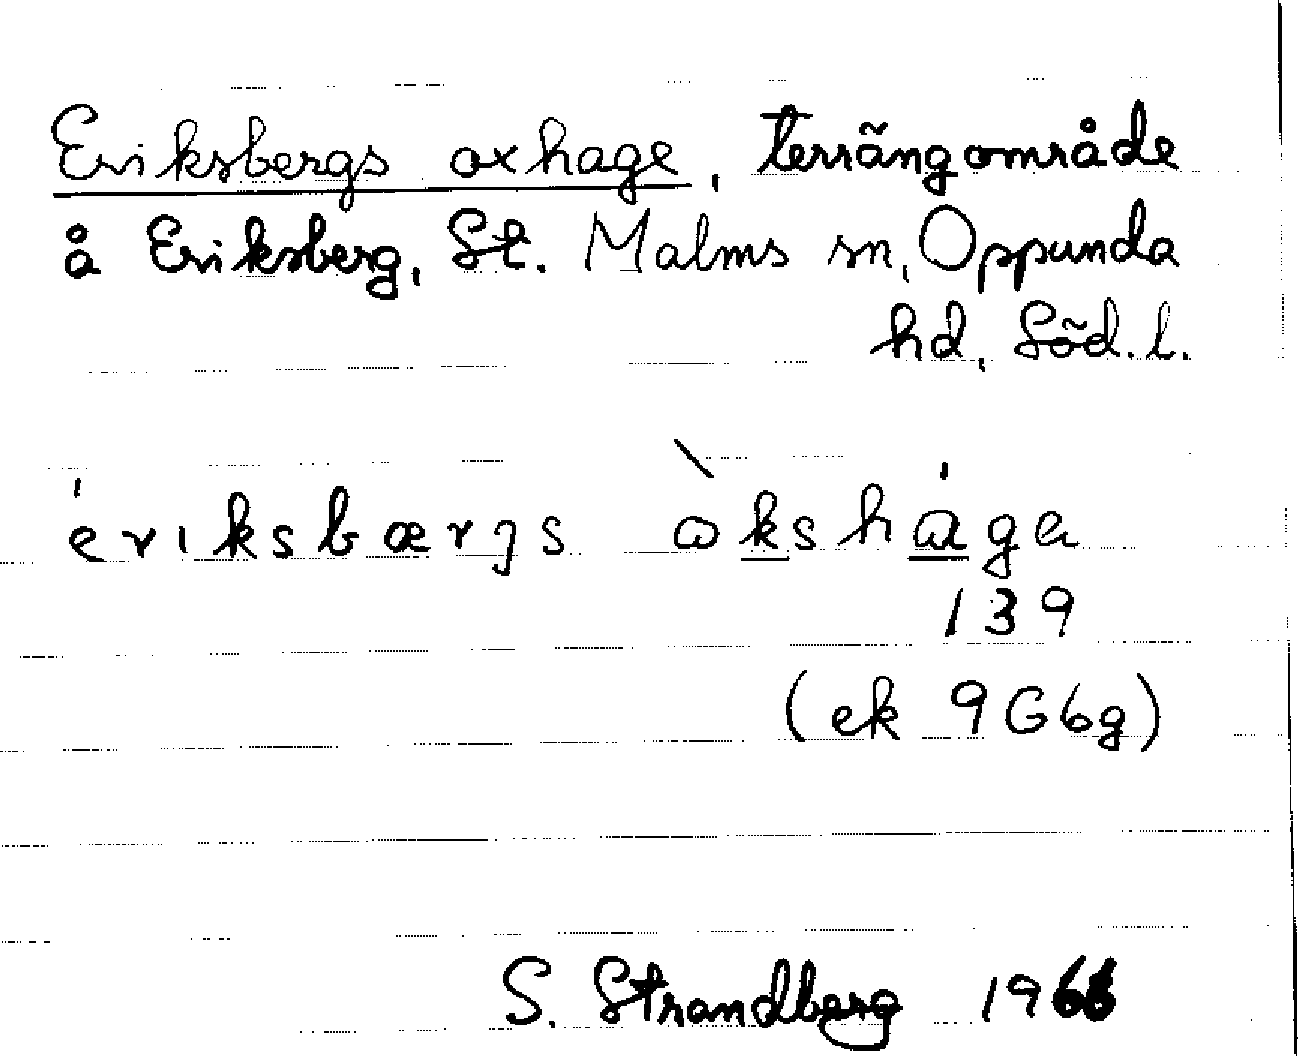 Eriksbergs oxhage, terrängområde
å Eriksberg, St. Malms sn, Oppunda
hd, Söd. l.
ériksbærgs ὼkshága
139
(ek 9G6g)
S. Strandberg